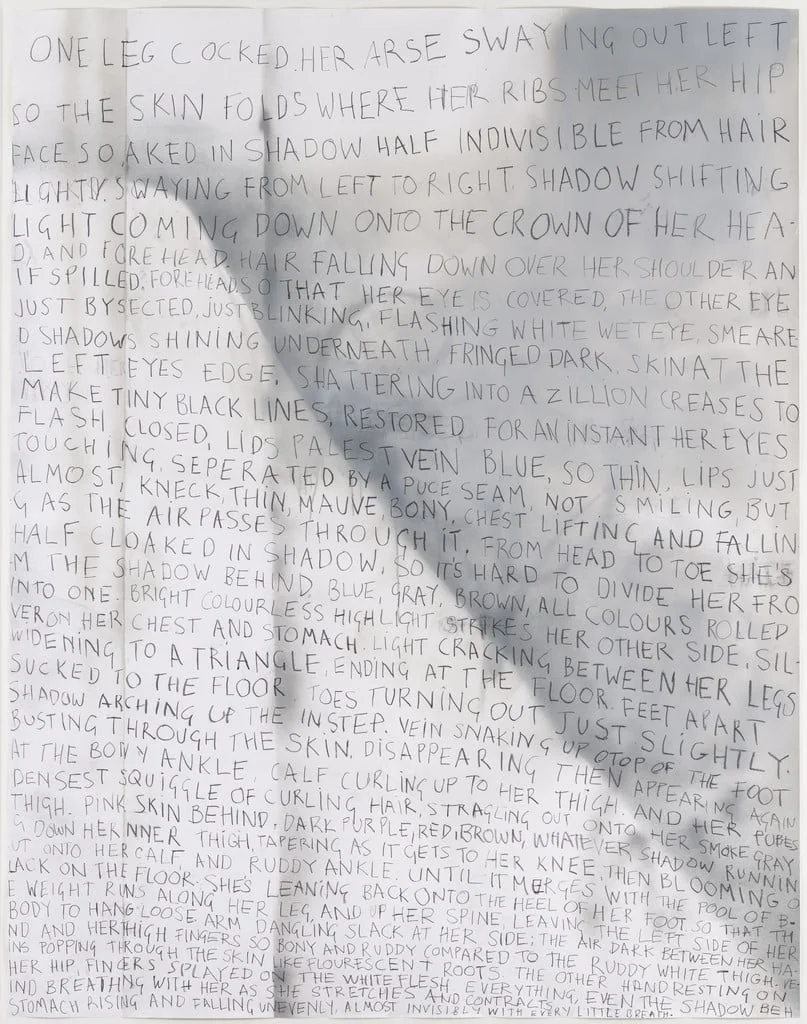 ONE LEG COCKED. HER ARSE SWAYING OUT LEFT
SO THE SKIN FOLDS WHERE HER RIBS MEET HER HIP
FACE SOAKED IN SHADOW HALF INDIVISIBLE FROM HAIR
LIGHTLY. SWAYING FROM LEFT TO RIGHT, SHADOW SHIFTING
LIGHT COMING DOWN ONTO THE CROWN OF HER HEA-
D, AND FOREHEAD, HAIR FALLING DOWN OVER HER SHOULDER AN
IF SPILLED, FOREHEAD SO THAT HER EYE IS COVERED, THE OTHER EYE
JUST BYSECTED, JUST BLINKING, FLASHING WHITE WET EYE, SMEARE
D SHADOWS SHINING UNDERNEATH, FRINGED DARK, SKIN AT THE
LEFT EYES EDGE, SHATTERING INTO A ZILLION CREASES TO
MAKE TINY BLACK LINES, RESTORED, FOR AN INSTANT HER EYES
FLASH CLOSED, LIDS PALEST VEIN BLUE, SO THIN, LIPS JUST
TOUCHING, SEPERATED BY A PUCE SEAM, NOT SMILING, BUT
ALMOST, KNECK, THIN, MAUVE, BONY, CHEST LIFTING AND FALLIN
G AS THE AIR PASSES THROUGH IT, FROM HEAD TO TOE SHE'S
HALF CLOAKED IN SHADOW, SO IT'S HARD TO DIVIDE HER FRO
-M THE SHADOW BEHIND, BLUE, GRAY, BROWN, ALL COLOURS ROLLED
INTO ONE. BRIGHT COLOURLESS HIGHLIGHT STRIKES HER OTHER SIDE, SIL-
VER ON HER CHEST AND STOMACH. LIGHT CRACKING BETWEEN HER LEGS
WIDENING TO A TRIANGLE, ENDING AT THE FLOOR. FEET APART
SUCKED TO THE FLOOR. TOES TURNING OUT JUST SLIGHTLY.
SHADOW ARCHING UP THE INSTEP. VEIN SNAKING UP OTOP OF THE FOOT
BUSTING THROUGH THE SKIN, DISAPPEARING THEN APPEARING AGAIN
AT THE BONY ANKLE, CALF CURLING UP TO HER THIGH. AND HER PUBES
DENSEST SQUIGGLE OF CURLING HAIR, STRAGLING OUT ONTO HER SMOKE GRAY
THIGH. PINK SKIN BEHIND, DARK PURPLE, RED, BROWN, WHATEVER, SHADOW RUNNIN
G DOWN HER INNER THIGH, TAPERING AS IT GETS TO HER KNEE. THEN BLOOMING O
UT ONTO HER CALF AND RUDDY ANKLE. UNTIL IT MERGES WITH THE POOL OF B-
LACK ON THE FLOOR. SHE'S LEANING BACK ONTO THE HEEL OF HER FOOT. SO THAT TH
E WEIGHT RUNS ALONG HER LEG, AND UP HER SPINE, LEAVING THE LEFT SIDE OF HER
BODY TO HANG LOOSE ARM DANGLING SLACK AT HER SIDE; THE AIR DARK BETWEEN HER HA-
ND AND HER THIGH FINGERS SO BONY AND RUDDY COMPARED TO THE RUDDY WHITE THIGH. VE-
INS POPPING THROUGH THE SKIN LIKE FLOURESCENT ROOTS. THE OTHER HAND RESTING ON
HER HIP, FINGERS SPLAYED ON THE WHITE FLESH. EVERYTHING, EVEN THE SHADOW BEH
IND BREATHING WITH HER AS SHE STRETCHES AND CONTRACTS,
STOMACH RISING AND FALLING UNEVENLY, ALMOST INVISIBLY WITH EVERY LITTLE BREATH.